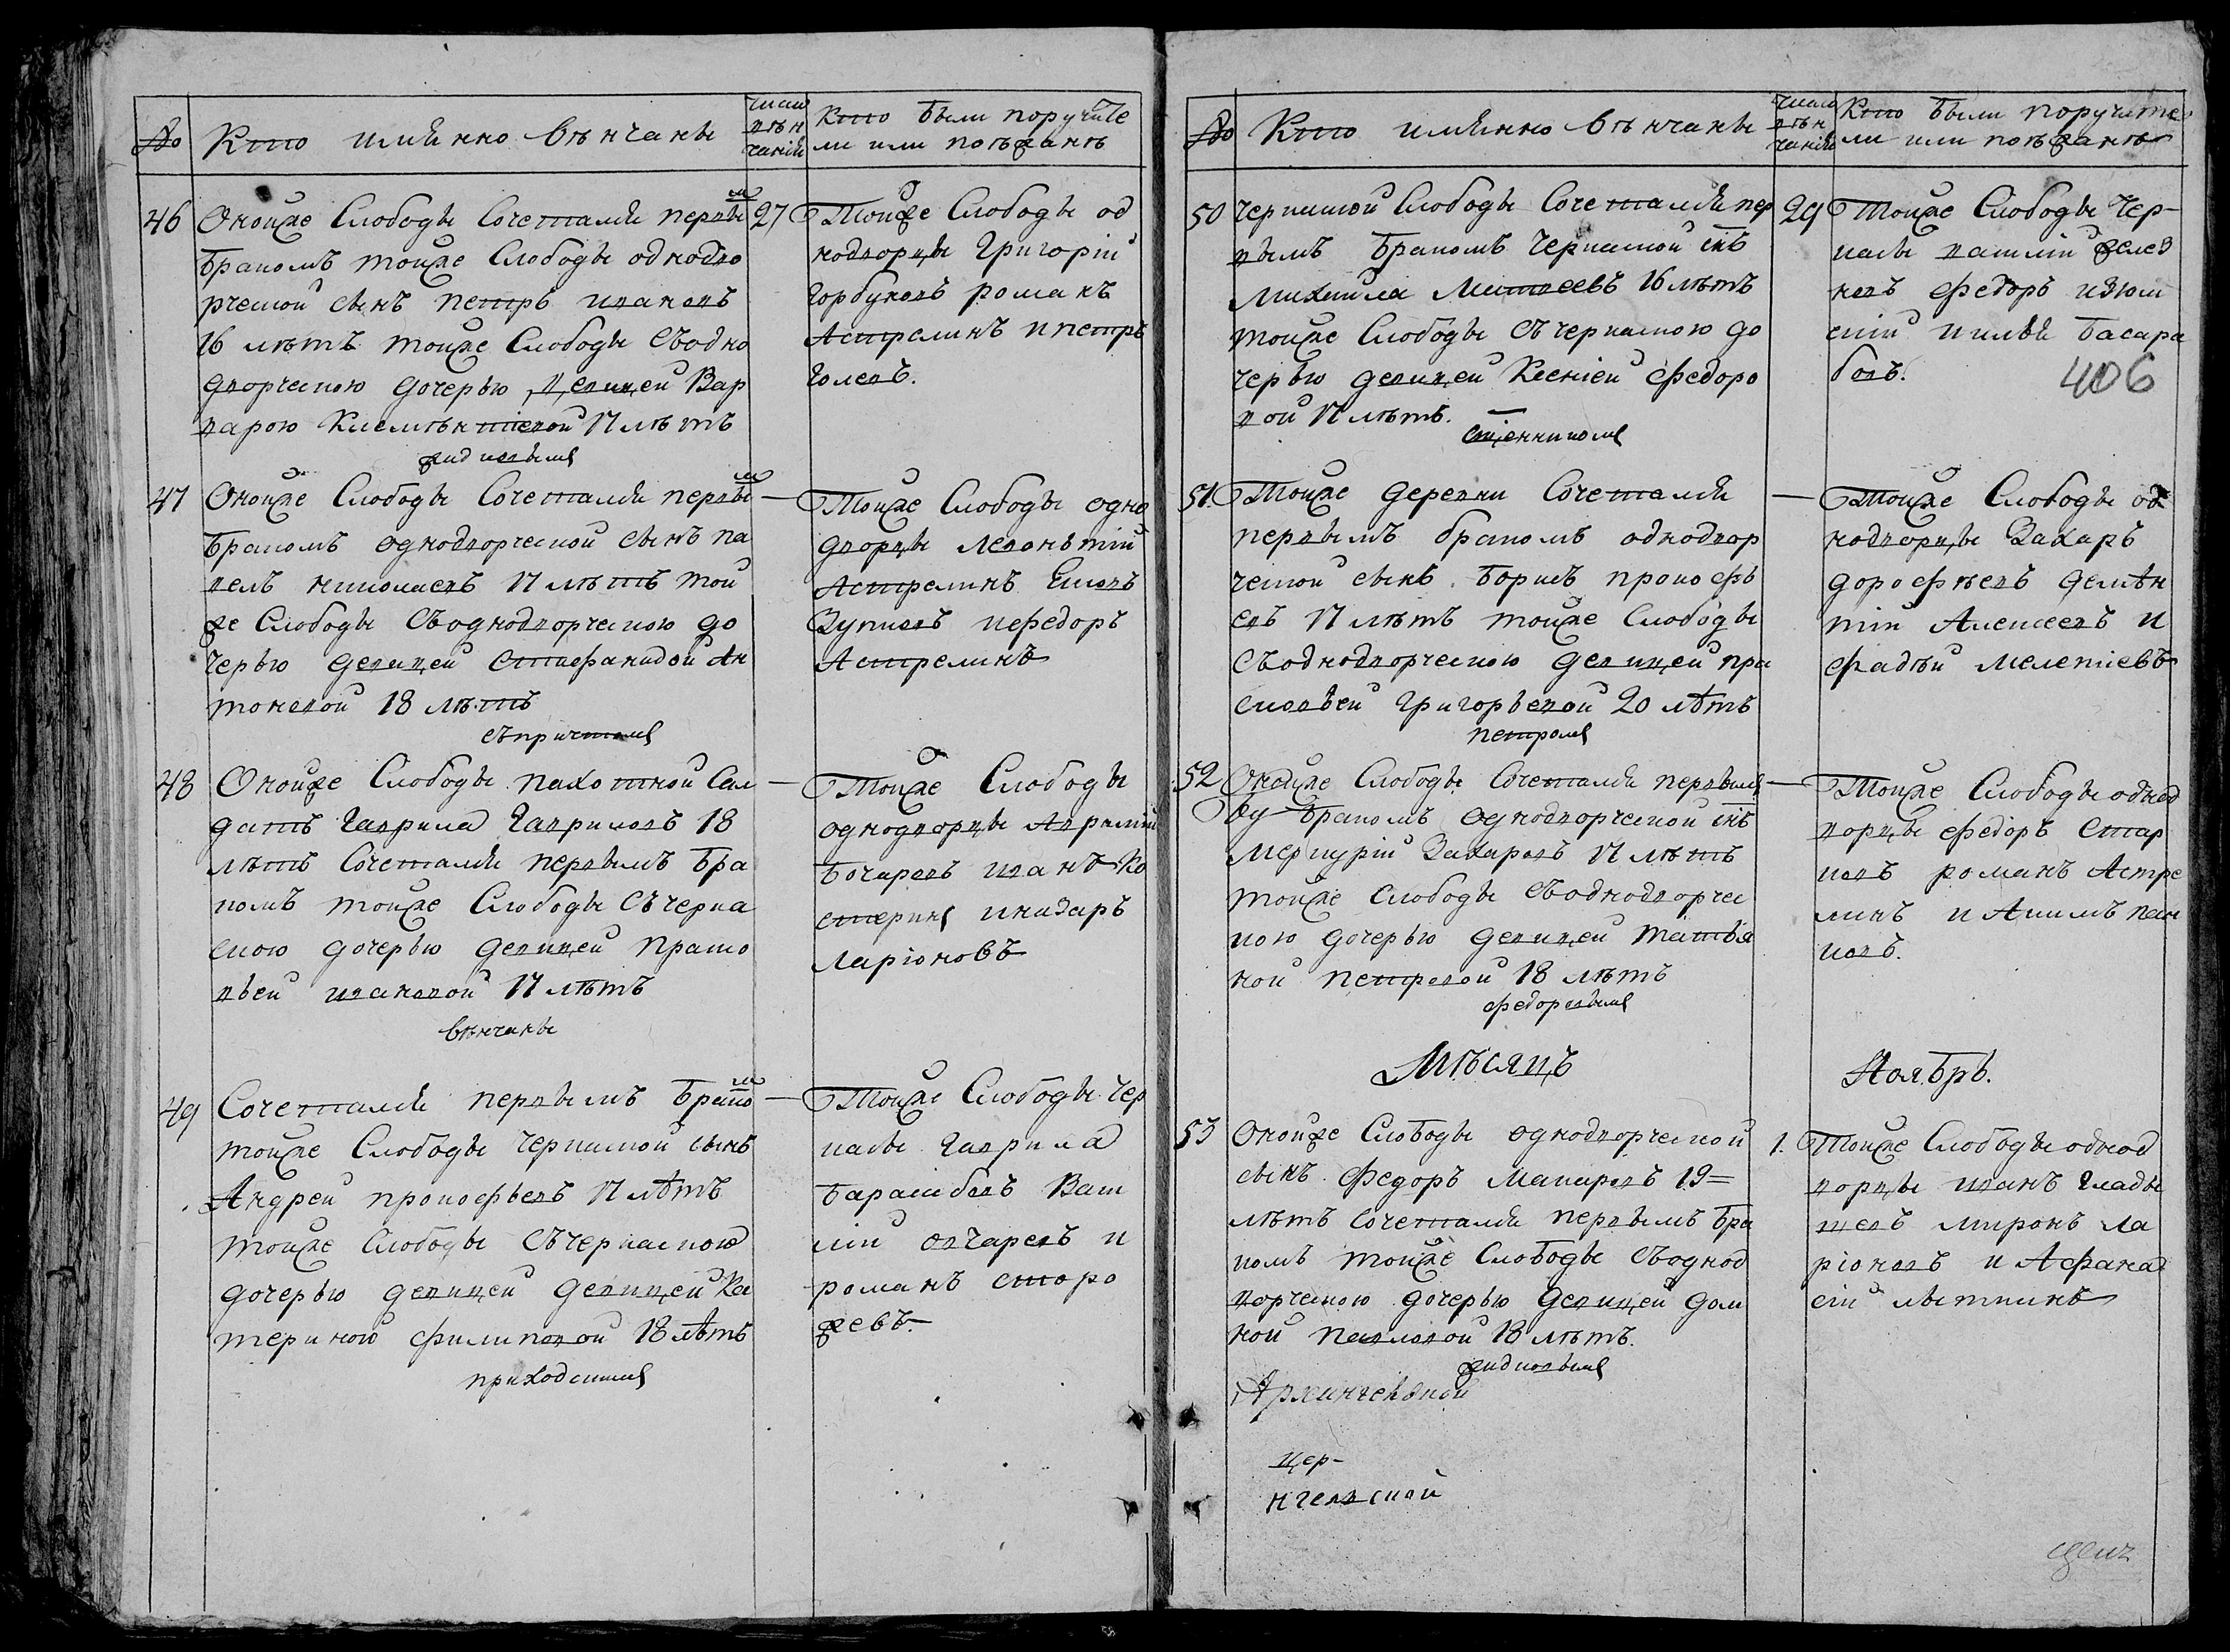 № Кто имянно венчаны
число
венчаній
Кто были поручите
ли или поезжанѣ
46 Оной же Слободы Сочетался первы
м
бракомъ тойже Слободы однодво
рческой сынъ петръ ивановъ
16 лѣтъ тойже Слободы Съодно
дворческою дочерью девицей Вар
варою Клементиевой 17 лѣтъ
жидковымъ
27 Тойже Слободы од
нодворцы Григорій
Горбуновъ романъ
Астрелинъ и петръ
Голевъ.
47 Онойже Слободы Сочетался первы
м
бракомъ однодворческой сынъ па
велъ николаевъ 17 лѣтъ той
же Слободы Съоднодворческою до
черью девицей Стефанидой Ан
тоновой 18 лѣтъ
съпричтомъ
— Тойже Слободы одно
дворцы Леонътий
Астрелинъ
и федоръ
Астрелинъ
48 Онойже Слободы пахотной Сал
датъ Гаврила Гавриловъ 18
лѣтъ Сочетался первымъ бра
комъ тойже Слободы Съчерка
скою дочерью девицей праско
вьей ивановой 17 лѣтъ
вѣнчаны
— Тойже Слободы
однодворцы
бочаровъ иванъ Ко
стеринъ иназаръ
Ларіоновъ
49 Сочетался первымъ брако
м
тойже Слободы Черкаской сынъ
Андрей прокофьевъ 17 лѣтъ
тойже Слободы Съчеркаскою
дочерью девицей девицей Ка
териною филиповой 18 лѣтъ
приходскимъ
— Тойже Слободы Чер
касы Гаврила
Васи
лій овчаровъ и
романъ сторо
жевъ.
№ Кто имянно венчаны
число
вен
чанія
Кто были поручите
ли или поезжанѣ
50 Черкаской Слободы Сочетался пер
вымъ бракомъ Черкаской снъ
Михайла Матвеевъ 16 лѣтъ
тойже Слободы Съчеркаскою до
черью девицей Ксеніей федоро
вой 17 лѣтъ.
сщенникомъ
29 Тойже Слободы Чер-
касы василій
федоръ изюм
скій и илья басара
бовъ.
406
51. Тойже деревни Сочетался
первымъ бракомъ однодвор
ческой сынъ борисъ прокофь
евъ 17 лѣтъ тойже Слободы
Съоднодворческою девицей пра
сковьей Григорьевой 20 лѣтъ
петромъ
— Тойже Слободы од
нодворцы Захаръ
дорофѣевъ демен
тій Алексеевъ и
фадѣй мелетіевъ
52 Онойже Слободы Сочетался первымъ
бракомъ однодворческой снъ
Меркурій Захаровъ 17 лѣтъ
тойже Слободы Съоднодворчес
кою дочерью девицей татья
ной петровой 18 лѣтъ
федоровымъ
— Тойже Слободы однод
ворцы федоръ стар
ковъ романъ Астре
линъ и Акимъ пан
ковъ.
Мѣсяцъ Ноябрь.
53 Онойже Слободы однодворческой
сынъ федоръ Макаровъ 19=
лѣтъ Сочетался первымъ бра
комъ тойже Слободы Съоднод
ворческою дочерью девицей дом
ной павловой 18 лѣтъ.
жидковымъ
1. Тойже Слободы однод
ворцы иванъ Глады
шевъ миронъ ла
ріоновъ и Афана
сій лыткинъ
цер-